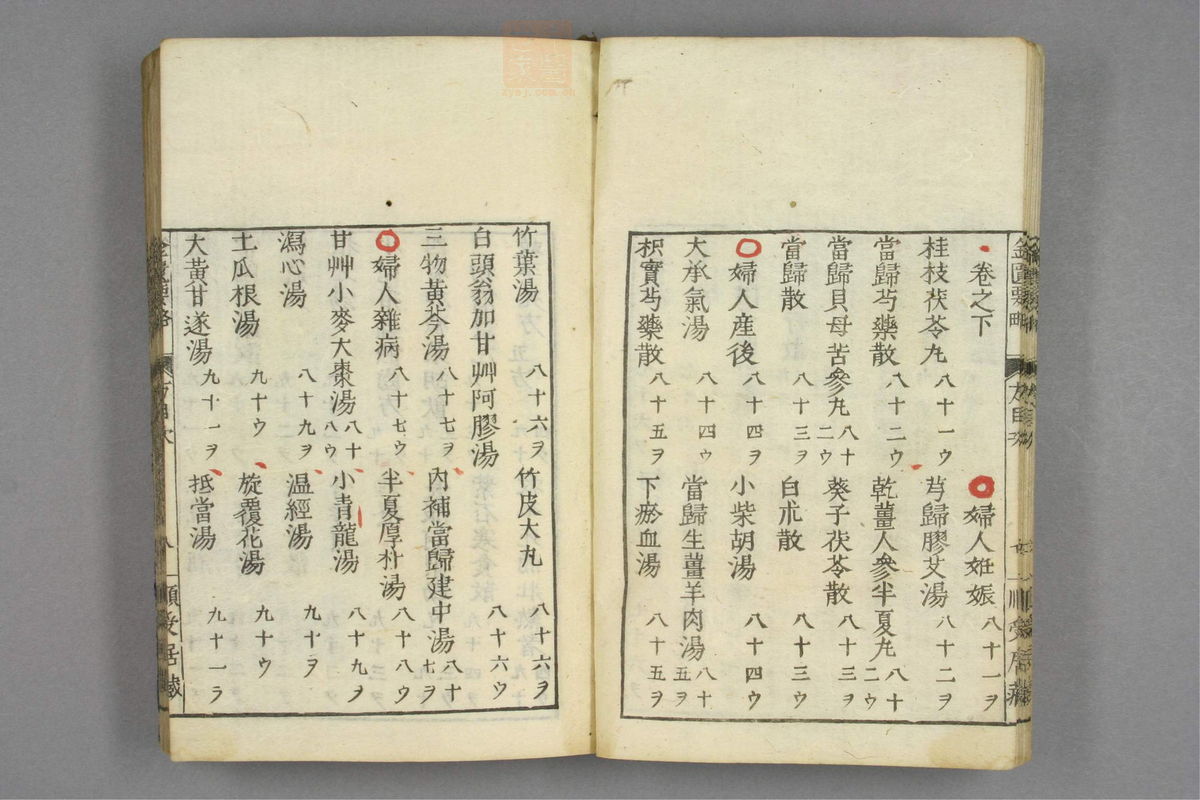 金匱要略
卷之下　婦人妊娠 八十一ヲ
桂枝茯苓丸 八十一ウ　芎歸膠艾湯 八十二ヲ
當歸芍藥散 八十二ウ　乾薑人參半夏丸 八十二ウ
當歸貝母苦參丸 八十二ウ　葵子茯苓散 八十三ヲ
當歸散 八十三ヲ　白朮散 八十三ウ
婦人産後 八十四ヲ　小柴胡湯 八十四ウ
大承氣湯 八十四ウ　當歸生薑羊肉湯 八十五ヲ
枳實芍藥散 八十五ヲ　下瘀血湯 八十五ヲ
竹葉湯 八十六ヲ　竹皮大丸 八十六ウ
白頭翁加甘艸阿膠湯 八十六ヲ
三物黃芩湯 八十七ヲ　內補當歸建中湯 八十七ヲ
婦人雜病 八十七ウ　半夏厚朴湯 八十八ウ
甘艸小麥大棗湯 八十八ウ　小青龍湯 八十九ヲ
瀉心湯 八十九ヲ　温經湯 九十ヲ
土瓜根湯 九十ウ　旋覆花湯 九十ウ
大黃甘遂湯 九十一ヲ　抵當湯 九十一ヲ
方目次
八
順受居藏